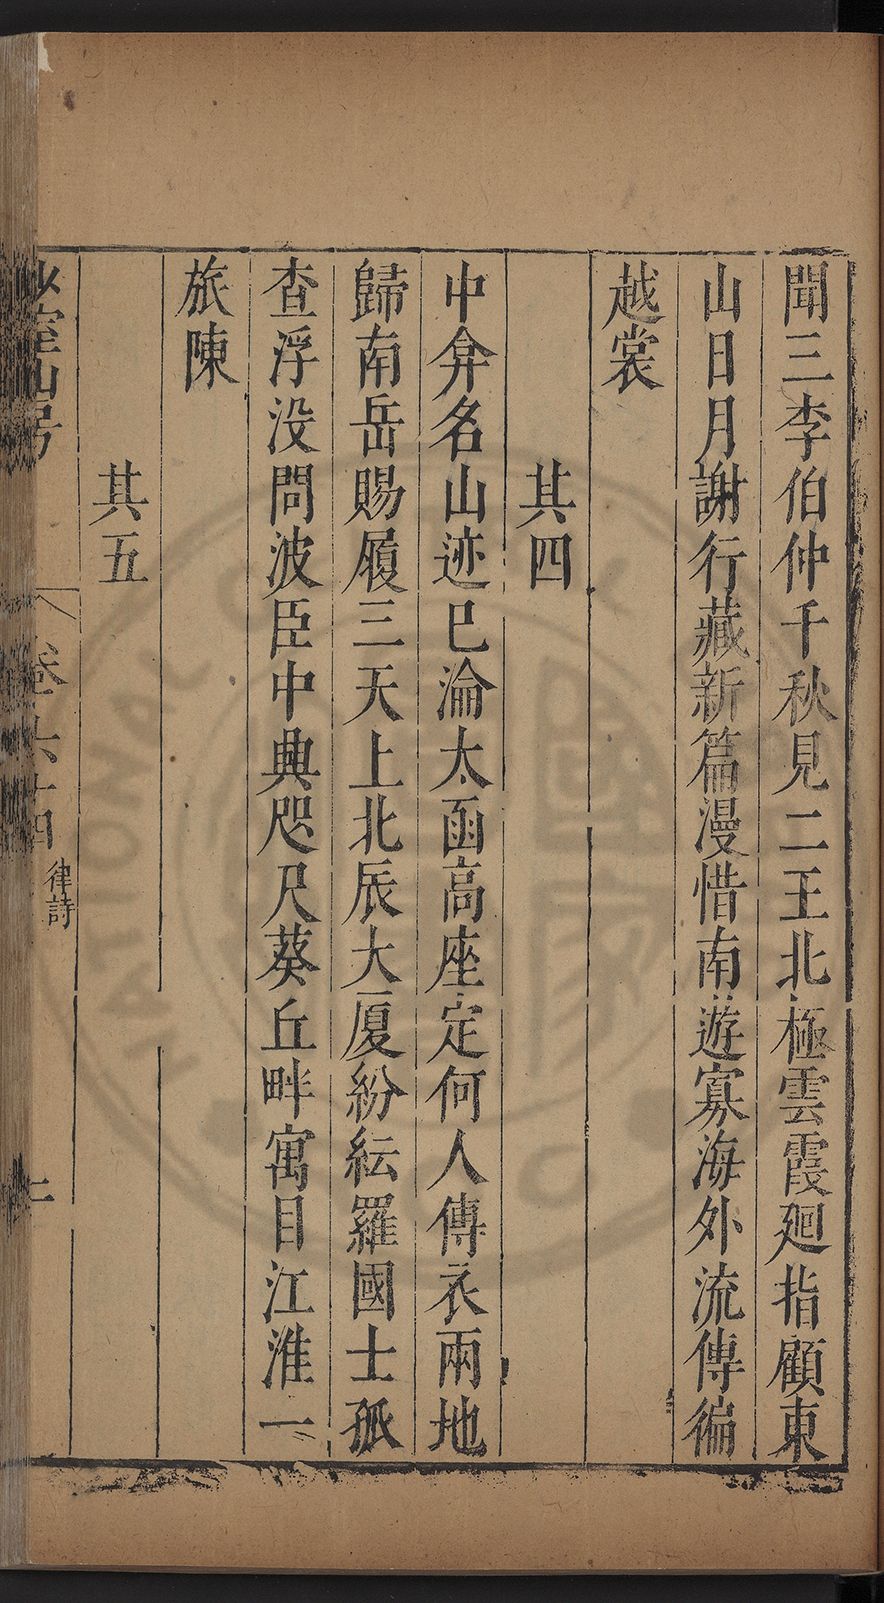 聞三李伯仲千秋見二王北極雲霞廻指顧東
山日月謝行藏新篇漫惜南遊寡海外流傳徧
越裳
其四
中弇名山迹巳淪太函高座定何人傳衣兩地
歸南岳賜履三天上北辰大厦紛紜羅國士孤
查浮没問波臣中興咫尺葵丘畔寓目江淮一
旅陳
其五
少室山房
卷六十四
律詩